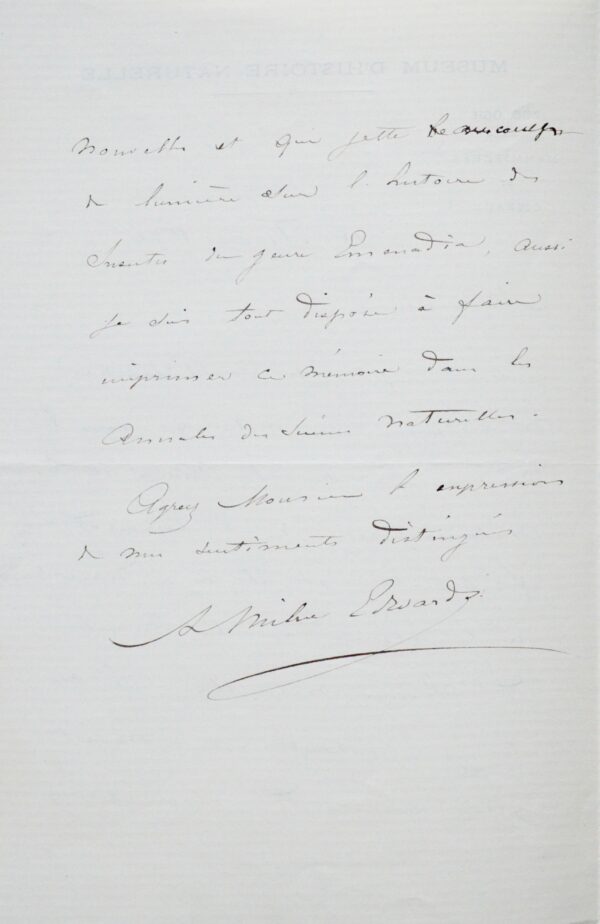 MUSEUM D'HISTOIRE NATURELLE
nouvelles et qui jette beaucoup
de lumière sur l'histoire des
Insectes du genre Emenadia, aussi
je suis tout disposé à faire
imprimer ce mémoire dans les
Annales des Sciences naturelles.
Agréez Monsieur l'expression
de mes sentiments distingués
A Milne Edwards